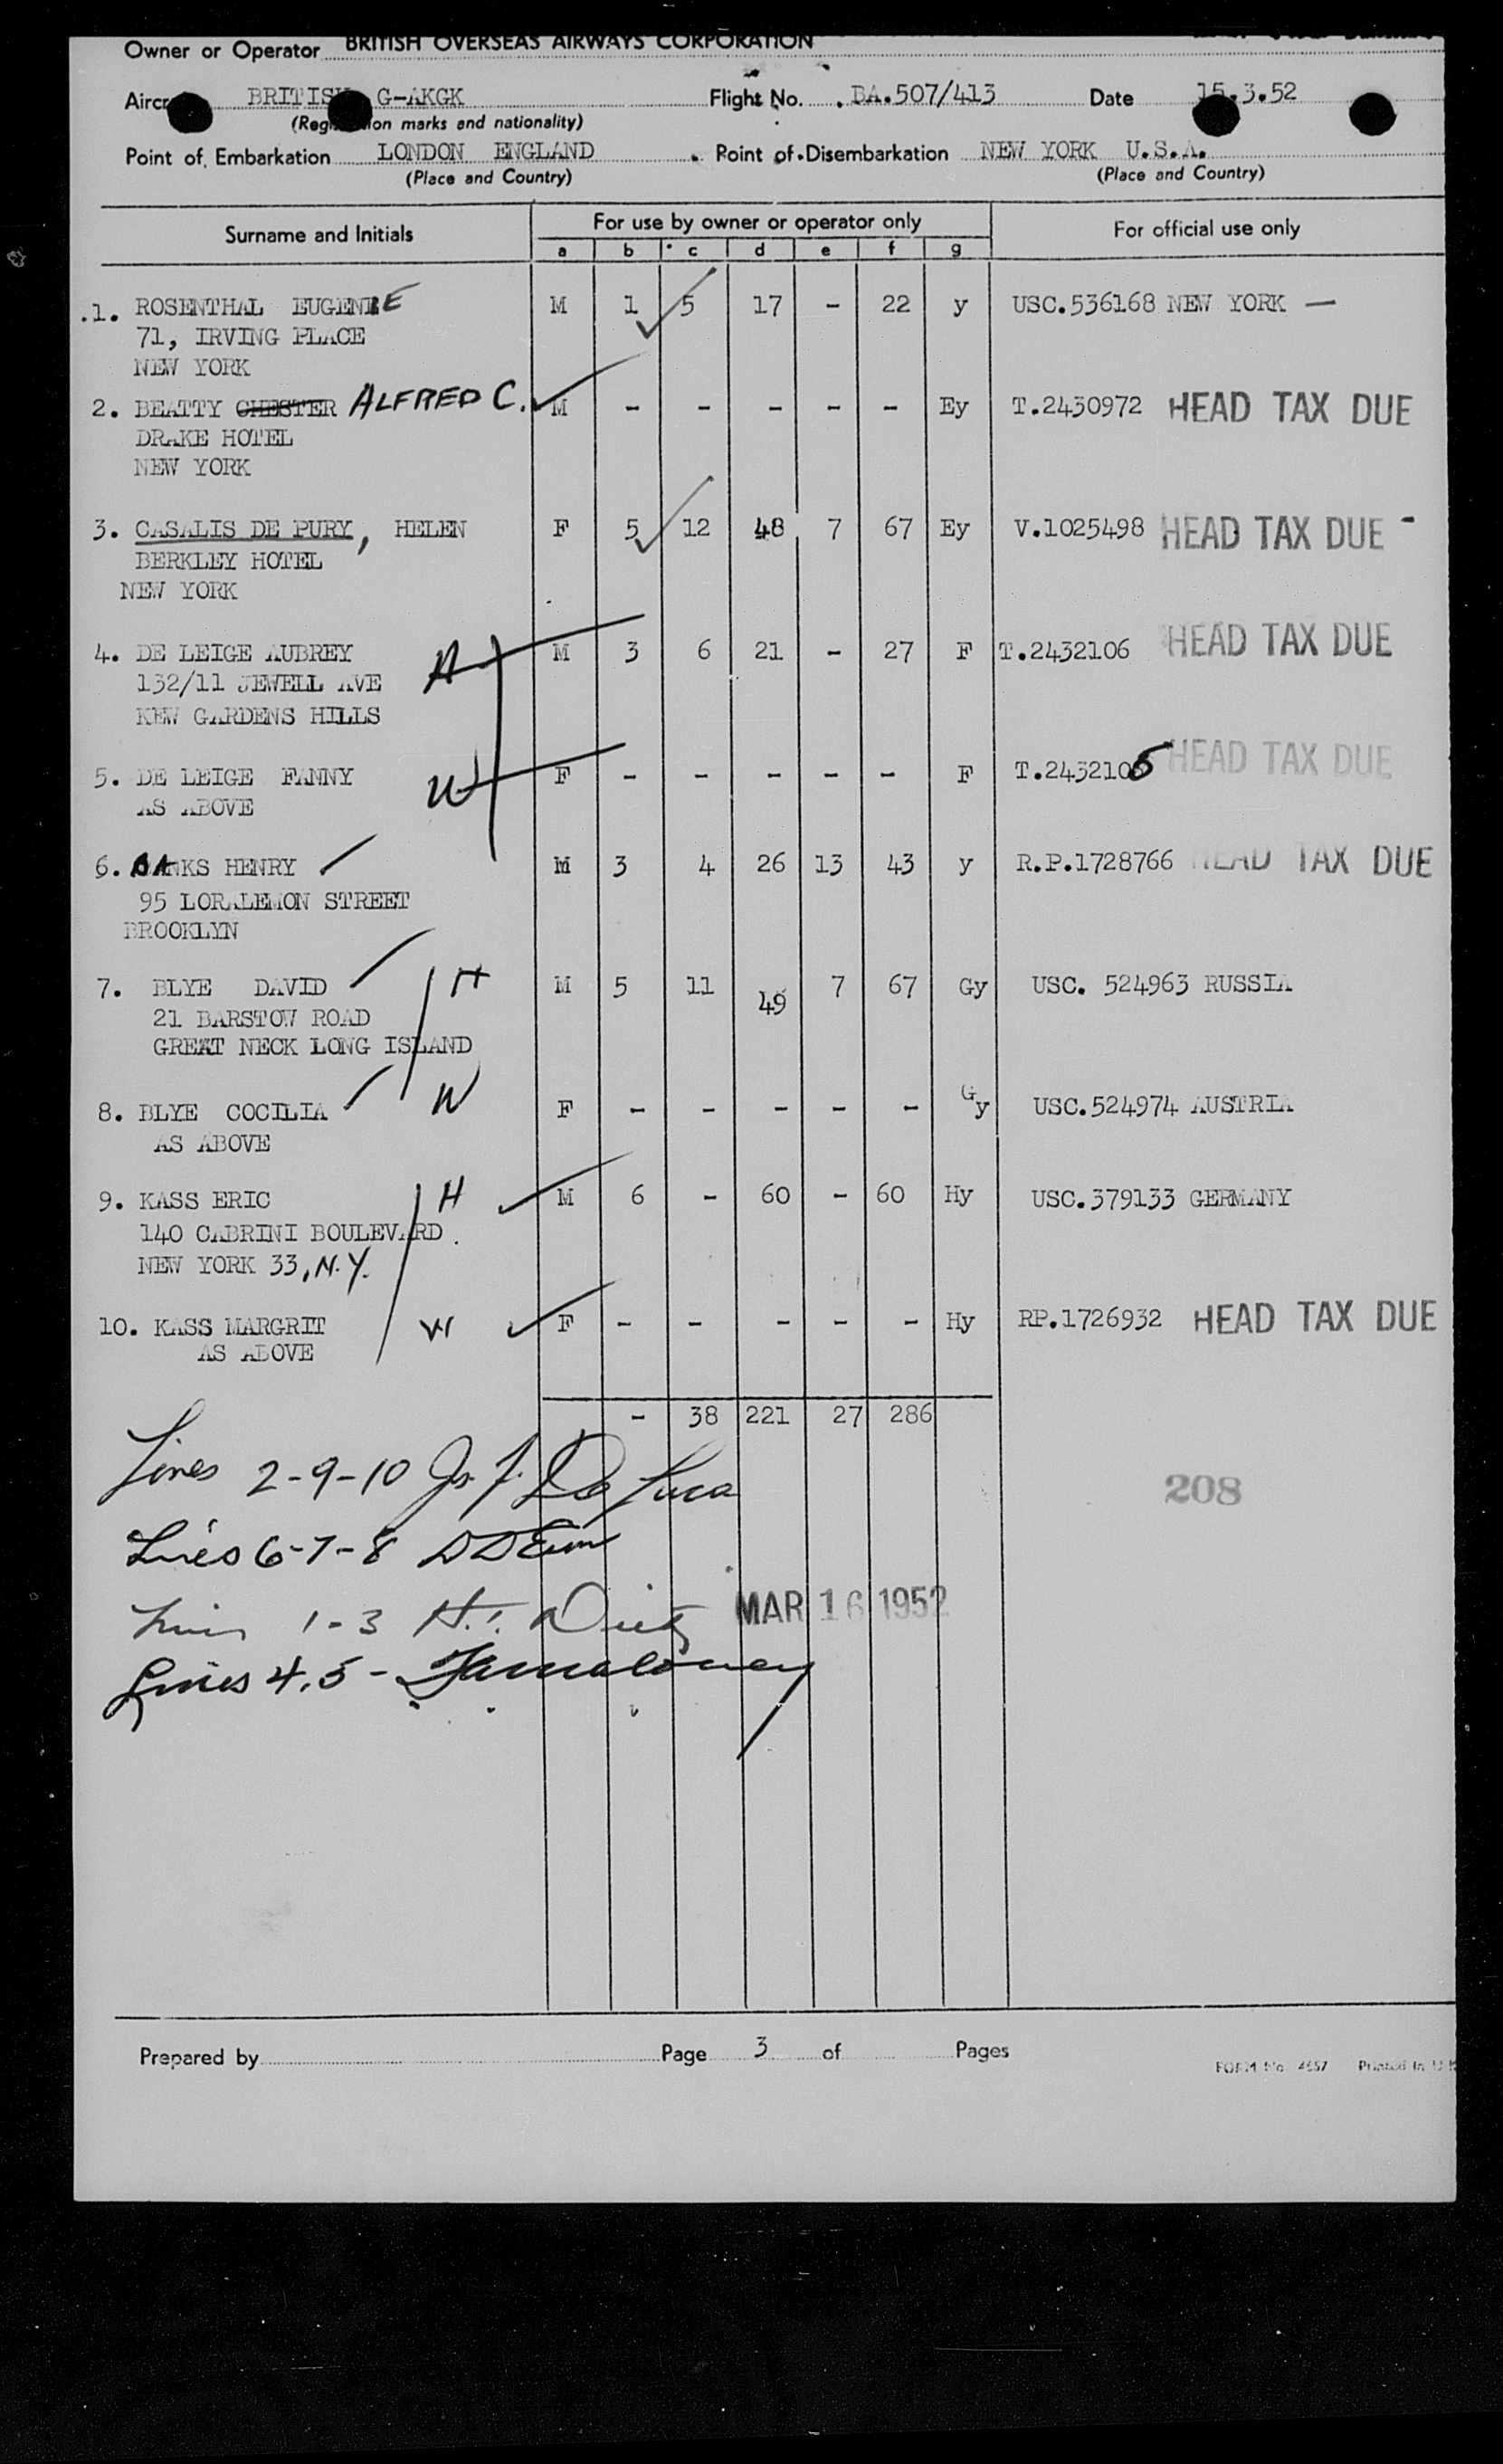 Owner or Operator BRITISH OVERSEAS AIRWAYS CORPORATION
BRITISH G-AKGK Flight No. BA.507/413 Date 15.3.52
(Registration marks and nationality)
Point of Embarkation LONDON ENGLAND Point of Disembarkation NEW YORK U.S.A.
(Place and Country) (Place and Country)
Surname and Initials For use by owner or operator only For official use only
a b c d e f g
1. ROSENTHAL EUGENE M 1 5 17 - 22 y USC.536168 NEW YORK —
71, IRVING PLACE
NEW YORK
2. BEATTY CHESTER ALFRED C. M - - - - - Ey T.2430972 HEAD TAX DUE
DRAKE HOTEL
NEW YORK
3. CASALIS DE PURY, HELEN F 5 12 48 7 67 Ey V.1025498 HEAD TAX DUE -
BERKLEY HOTEL
NEW YORK
4. DE LEIGE AUBREY H M 3 6 21 - 27 F T.2432106 HEAD TAX DUE
132/11 JEWELL AVE
KEW GARDENS HILLS
5. DE LEIGE FANNY W F - - - - - F T.2432105 HEAD TAX DUE
AS ABOVE
6. BANKS HENRY M 3 4 26 13 43 y R.P.1728766 HEAD TAX DUE
95 LORALEMON STREET
BROOKLYN
7. BLYE DAVID H M 5 11 49 7 67 Gy USC. 524963 RUSSIA
21 BARSTOW ROAD
GREAT NECK LONG ISLAND
8. BLYE COCILIA W F - - - - - Gy USC.524974 AUSTRIA
AS ABOVE
9. KASS ERIC H M 6 - 60 - 60 Hy USC.379133 GERMANY
140 CABRINI BOULEVARD.
NEW YORK 33, N.Y.
10. KASS MARGRIT W F - - - - - Hy RP.1726932 HEAD TAX DUE
AS ABOVE
- 38 221 27 286
Lines 2-9-10 De Luca
208
Lines 6-7-8
Lines 1-3 H.
MAR 16 1952
Lines 4,5 -
Prepared by Page 3 of Pages
FORM No. 4557 Printed in